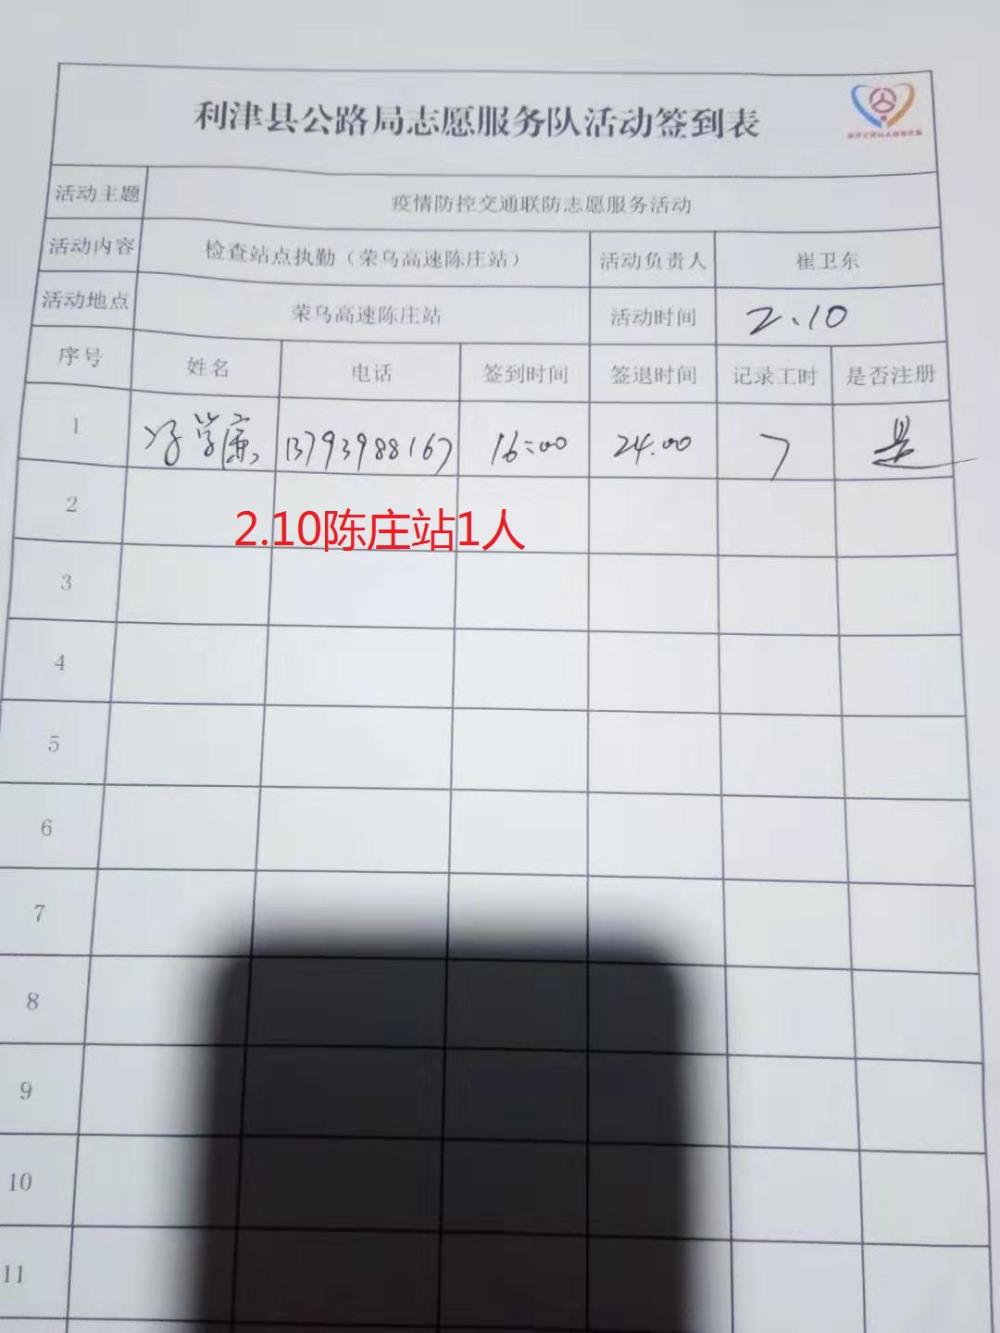 利津县公路局志愿服务队活动签到表
活动主题 疫情防控交通联防志愿服务活动
活动内容 检查站点执勤（荣乌高速陈庄站） 活动负责人 崔卫东
活动地点 荣乌高速陈庄站 活动时间 2.10
序号 姓名 电话 签到时间 签退时间 记录工时 是否注册
1 学 13793988167 16:00 24.00 7 是
2
2.10陈庄站1人
3
4
5
6
7
8
9
10
11